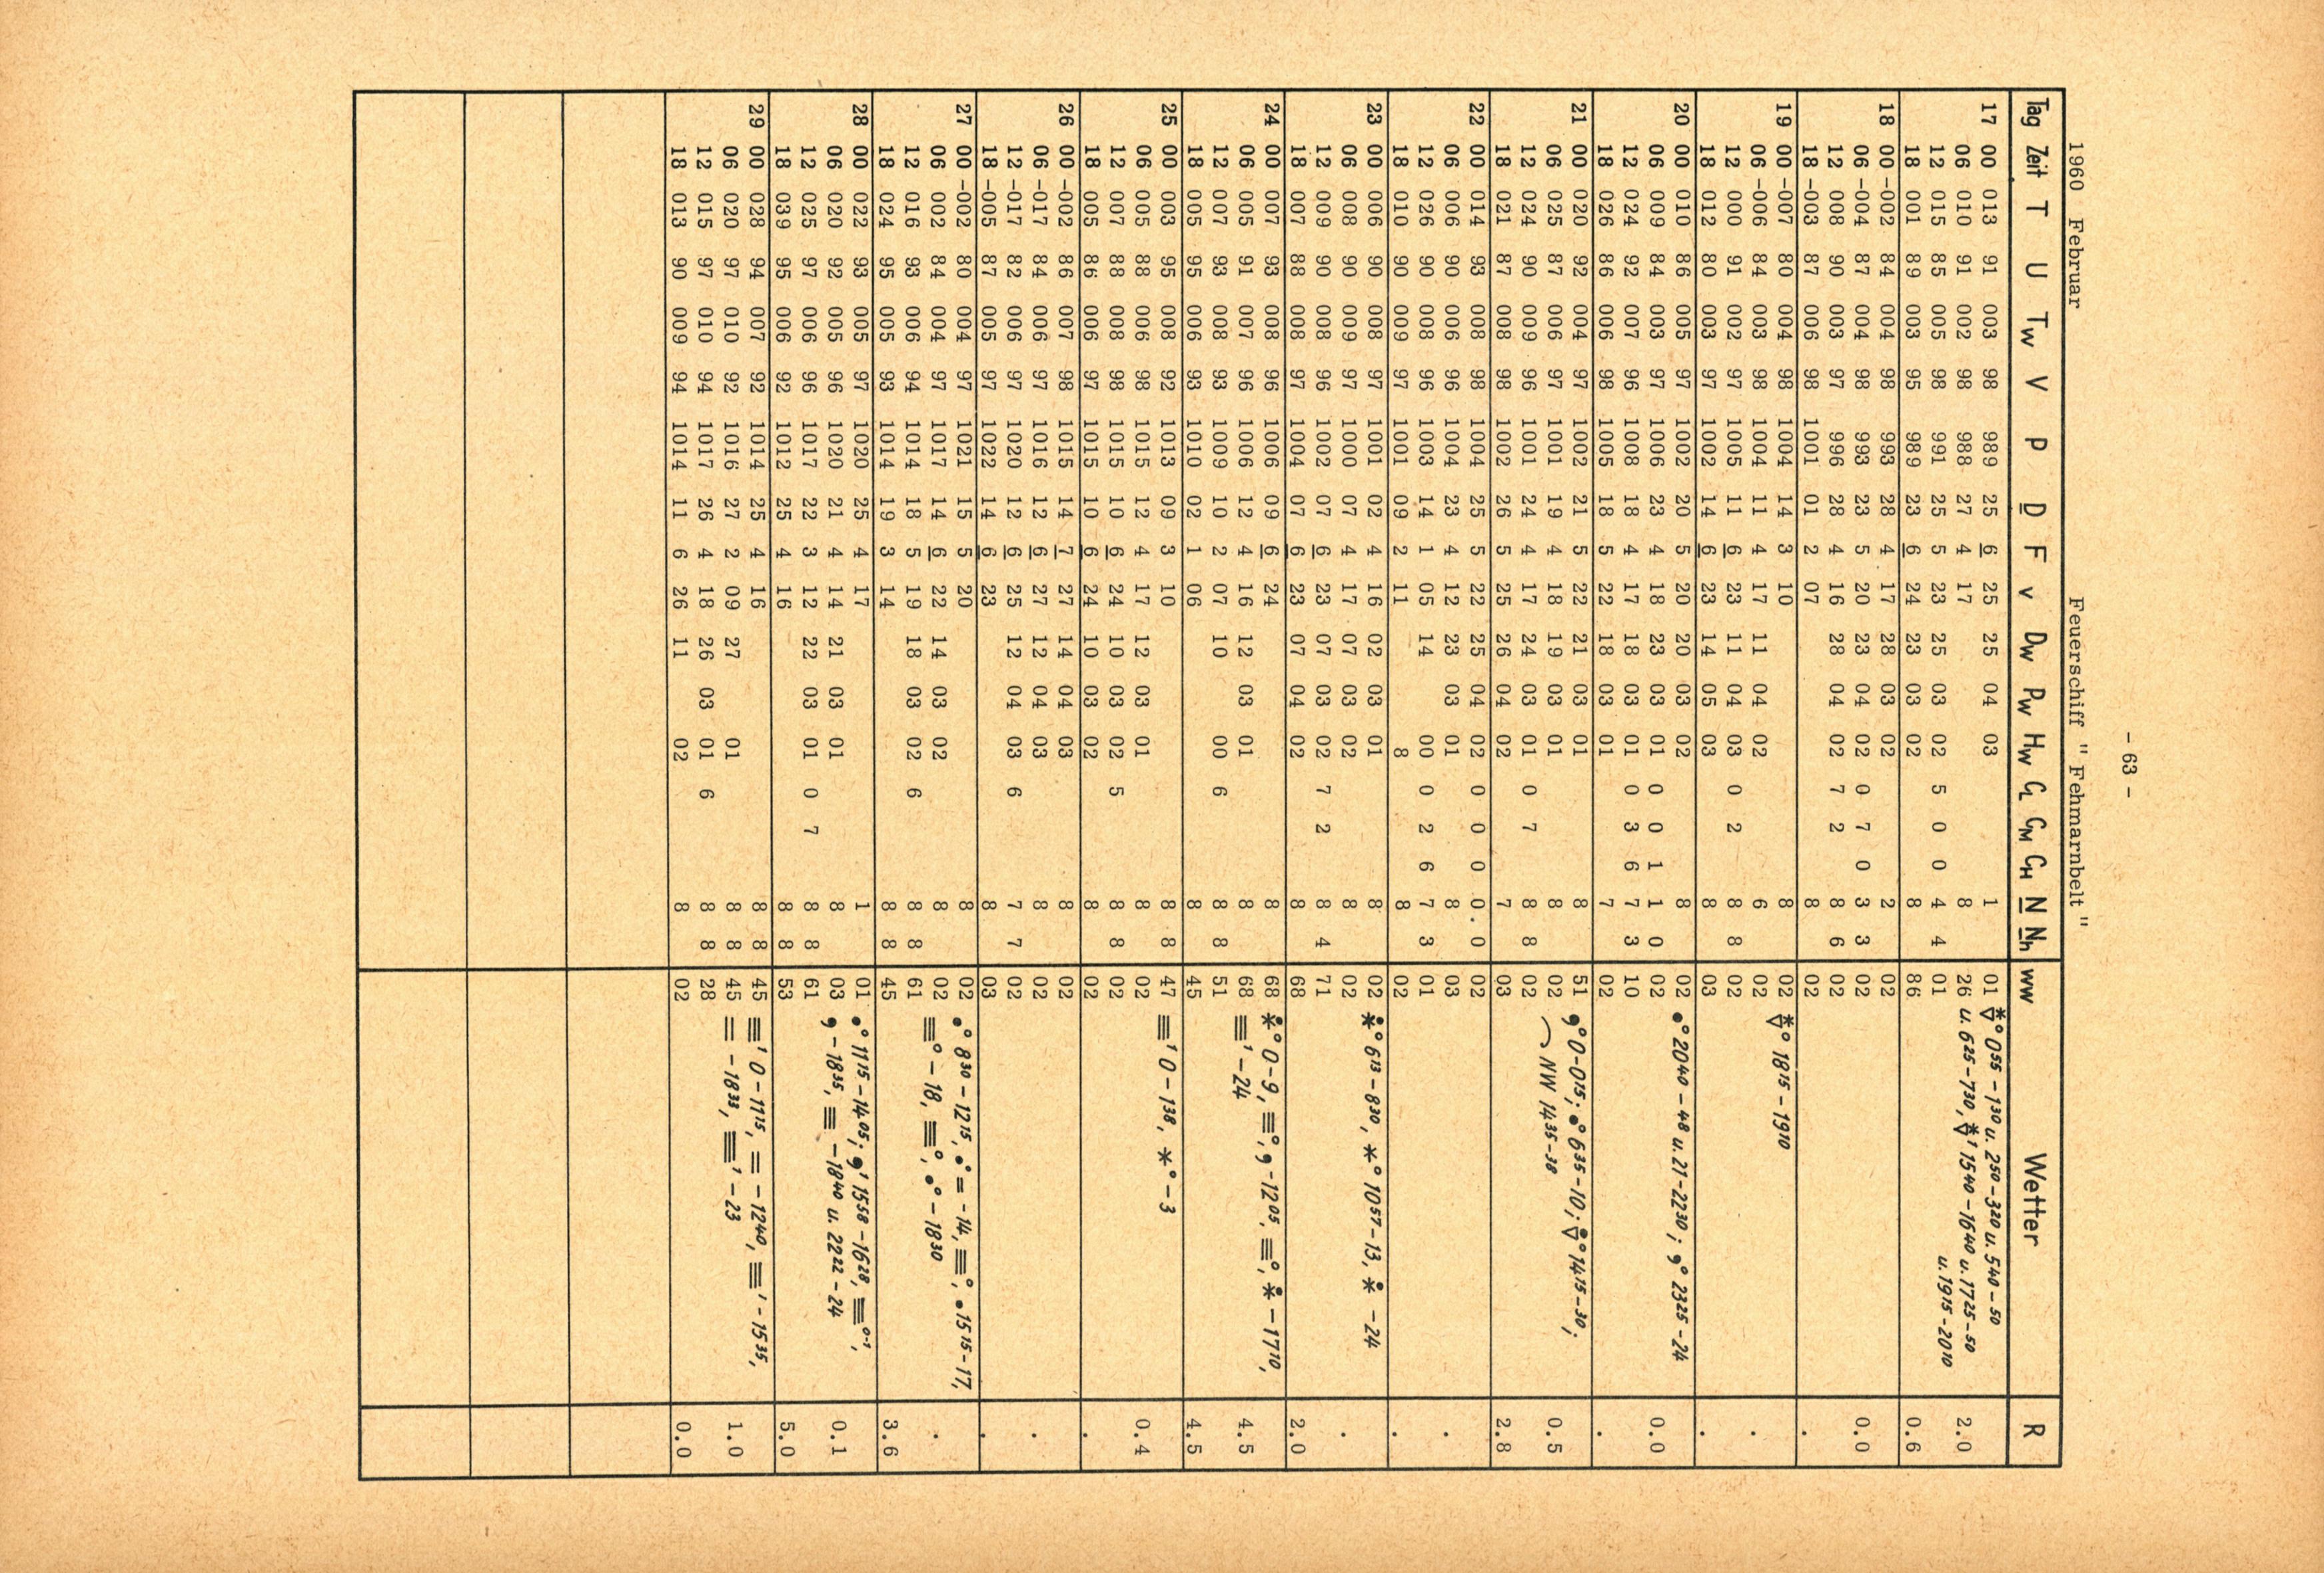 - 63 -
1960 Februar Feuerschiff " Fehmarnbelt "
Tag Zeit T U Tw V P D F v Dw Pw Hw CL CM CH N Nh ww Wetter R
17 00 013 91 003 98 989 25 6 25 25 04 03 1 01 ∗▽° 0⁵⁵ – 1³⁰ u. 2⁵⁰ – 3²⁰ u. 5⁴⁰ – 50
06 010 91 002 98 988 27 4 17 8 26 u. 6²⁵ – 7³⁰, ∗▽' 15⁴⁰ – 16⁴⁰ u. 17²⁵ – 50 2.0
12 015 85 005 98 991 25 5 23 25 03 02 5 0 0 4 4 01 u. 19¹⁵ – 20¹⁰
18 001 89 003 95 989 23 6 24 23 03 02 8 86 0.6
18 00 -002 84 004 98 993 28 4 17 28 03 02 2 02
06 -004 87 004 98 993 23 5 20 23 04 02 0 7 0 3 3 02 0.0
12 008 90 003 97 996 28 4 16 28 04 02 7 2 8 6 02
18 -003 87 006 98 1001 01 2 07 8 02 .
19 00 -007 80 004 98 1004 14 3 10 8 02 ∗▽° 18¹⁵ – 19¹⁰
06 -006 84 003 98 1004 11 4 17 11 04 02 6 02
12 000 91 002 97 1005 11 6 23 11 04 03 0 2 8 8 02 .
18 012 80 003 97 1002 14 6 23 14 05 03 8 03 .
20 00 010 86 005 97 1002 20 5 20 20 03 02 8 02 •° 20⁴⁰ – 48 u. 21 – 22³⁰; ,° 23²⁵ – 24
06 009 84 003 97 1006 23 4 18 23 03 01 0 0 1 1 0 02 0.0
12 024 92 007 96 1008 18 4 17 18 03 01 0 3 6 7 3 10
18 026 86 006 98 1005 18 5 22 18 03 01 7 02 .
21 00 020 92 004 97 1002 21 5 22 21 03 01 8 51 ,° 0 – 0¹⁵; •° 6³⁵ – 10; •▽° 14¹⁵ – 30;
06 025 87 006 97 1001 19 4 18 19 03 01 8 02 ⌒ NW 14³⁵ – 38 0.5
12 024 90 009 96 1001 24 4 17 24 03 01 0 7 8 8 02
18 021 87 008 98 1002 26 5 25 26 04 02 7 03 2.8
22 00 014 93 008 98 1004 25 5 22 25 04 02 0 0 0 0. 0 02
06 006 90 006 96 1004 23 4 12 23 03 01 8 03 .
12 026 90 008 96 1003 14 1 05 14 00 0 2 6 7 3 01
18 010 90 009 97 1001 09 2 11 8 8 02 .
23 00 006 90 008 97 1001 02 4 16 02 03 01 8 02 •∗° 6¹³ – 8³⁰, ∗° 10⁵⁷ – 13, •∗ – 24
06 008 90 009 97 1000 07 4 17 07 03 02 8 02 .
12 009 90 008 96 1002 07 6 23 07 03 02 7 2 8 4 71
18 007 88 008 97 1004 07 6 23 07 04 02 8 68 2.0
24 00 007 93 008 96 1006 09 6 24 8 68 •∗° 0 – 9, ≡°, , – 12⁰⁵, ≡°, •∗ – 17¹⁰,
06 005 91 007 96 1006 12 4 16 12 03 01 8 68 ≡' – 24 4.5
12 007 93 008 93 1009 10 2 07 10 00 6 8 8 51
18 005 95 006 93 1010 02 1 06 8 45 4.5
25 00 003 95 008 92 1013 09 3 10 8 8 47 ≡' 0 – 1³⁸, ∗° – 3
06 005 88 006 98 1015 12 4 17 12 03 01 8 02 0.4
12 007 88 008 98 1015 10 6 24 10 03 02 5 8 8 02
18 005 86 006 97 1015 10 6 24 10 03 02 8 02 .
26 00 -002 86 007 98 1015 14 7 27 14 04 03 8 02
06 -017 84 006 97 1016 12 6 27 12 04 03 8 02 .
12 -017 82 006 97 1020 12 6 25 12 04 03 6 7 7 02
18 -005 87 005 97 1022 14 6 23 8 03 .
27 00 -002 80 004 97 1021 15 5 20 8 02 •° 8³⁰ – 12¹⁵, •° = – 14, ≡°, • 15¹⁵ – 17,
06 002 84 004 97 1017 14 6 22 14 03 02 8 02 ≡° – 18, ≡°, •° – 18³⁰ .
12 016 93 006 94 1014 18 5 19 18 03 02 6 8 8 61
18 024 95 005 93 1014 19 3 14 8 8 45 3.6
28 00 022 93 005 97 1020 25 4 17 1 01 •° 11¹⁵ – 14⁰⁵; ,' 15⁵⁸ – 16²⁸, ≡°⁻¹,
06 020 92 005 96 1020 21 4 14 21 03 01 8 03 , – 18³⁵, ≡ – 18⁴⁰ u. 22²² – 24 0.1
12 025 97 006 96 1017 22 3 12 22 03 01 0 7 8 8 61
18 039 95 006 92 1012 25 4 16 8 8 53 5.0
29 00 028 94 007 92 1014 25 4 16 8 8 45 ≡' 0 – 11¹⁵, = – 12⁴⁰, ≡' – 15³⁵,
06 020 97 010 92 1016 27 2 09 27 01 8 8 45 = – 18³³, ≡' – 23 1.0
12 015 97 010 94 1017 26 4 18 26 03 01 6 8 8 28
18 013 90 009 94 1014 11 6 26 11 02 8 02 0.0